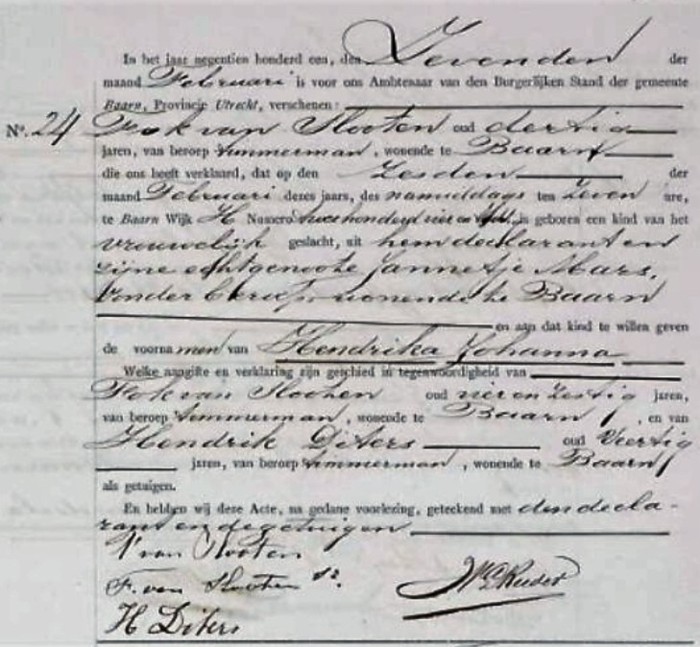 In het jaar negentien honderd een, den Zevenden der
maand Februari is voor ons Ambtenaar van den Burgerlijken Stand der gemeente
Baarn, Provincie Utrecht, verschenen:
No. 24 Fok van Slooten oud dertig
jaren, van beroep timmerman, wonende te Baarn
die ons heeft verklaard, dat op den Zesden der
maand Februari dezes jaars, des namiddags ten Zeven ure,
te Baarn Wijk H Numero tweehonderd vier en is geboren een kind van het
vrouwelijk geslacht, uit hem declarant en
zijne echtgenoote Jannetje Mars,
zonder beroep, wonende te Baarn
en aan dat kind te willen geven
de voornamen van Hendrika Johanna
Welke aangifte en verklaring zijn geschied in tegenwoordigheid van
Fok van Slooten oud vier en Zestig jaren,
van beroep timmerman, wonende te Baarn, en van
Hendrik Diters oud Veertig
jaren, van beroep timmerman, wonende te Baarn
als getuigen.
En hebben wij deze Acte, na gedane voorlezing, geteekend met den decla-
rant en de getuigen
F van Slooten
F. van Slooten Sr.
H Diters